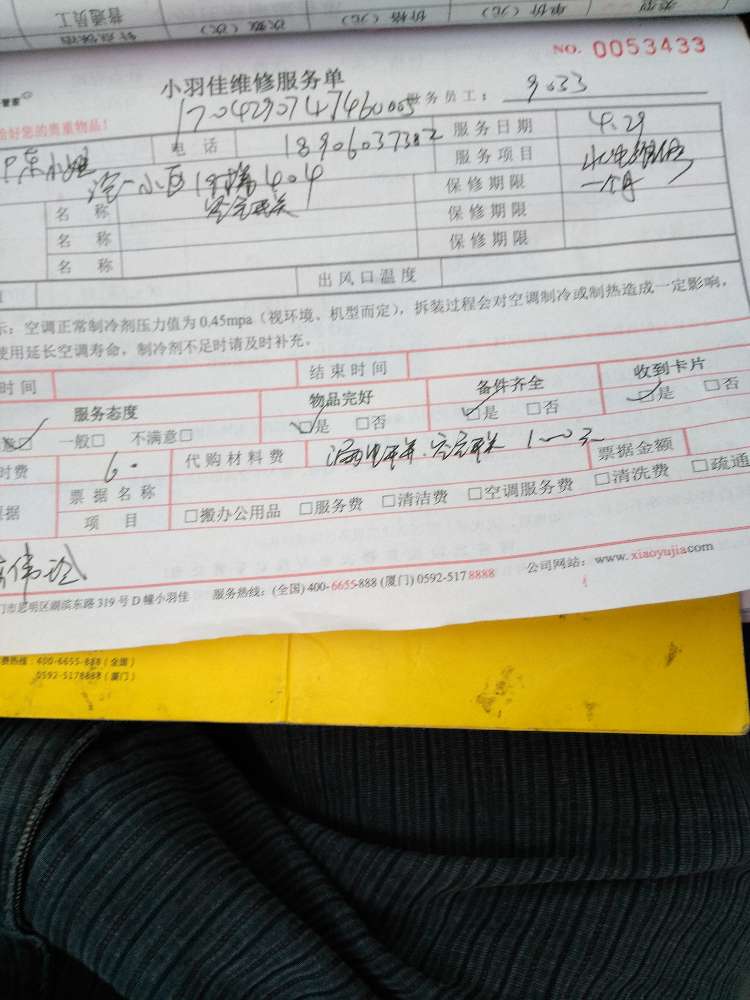 类型 单价（元） 价格（元） 次数（次）
普通员工
NO. 0053433
管家
小羽佳维修服务单
1704290747460005 服务员工： 9033
给好您的贵重物品！
电话 18906037382 服务日期 4.29
小姐 服务项目 水电维修
小区 404 保修期限 一个月
名称 空气开关 保修期限
名称 保修期限
名称
出风口温度
示：空调正常制冷剂压力值为 0.45mpa（视环境、机型而定），拆装过程会对空调制冷或制热造成一定影响，
使用延长空调寿命，制冷剂不足时请及时补充。
时间 结束时间
服务态度 物品完好 备件齐全 收到卡片
意□ 一般□ 不满意□ □是 □否 □是 □否 □是 □否
时费 60 代购材料费 漏电开关、空气开关 票据金额
票据 票据名称
项目 □搬办公用品 □服务费 □清洁费 □空调服务费 □清洗费 □疏通
门市思明区湖滨东路 319 号 D 幢小羽佳 服务热线：(全国) 400-6655-888 (厦门) 0592-517 8888 公司网站：www.xiaoyujia.com
费热线：400-6655-888（全国）
0592-5178888（厦门）